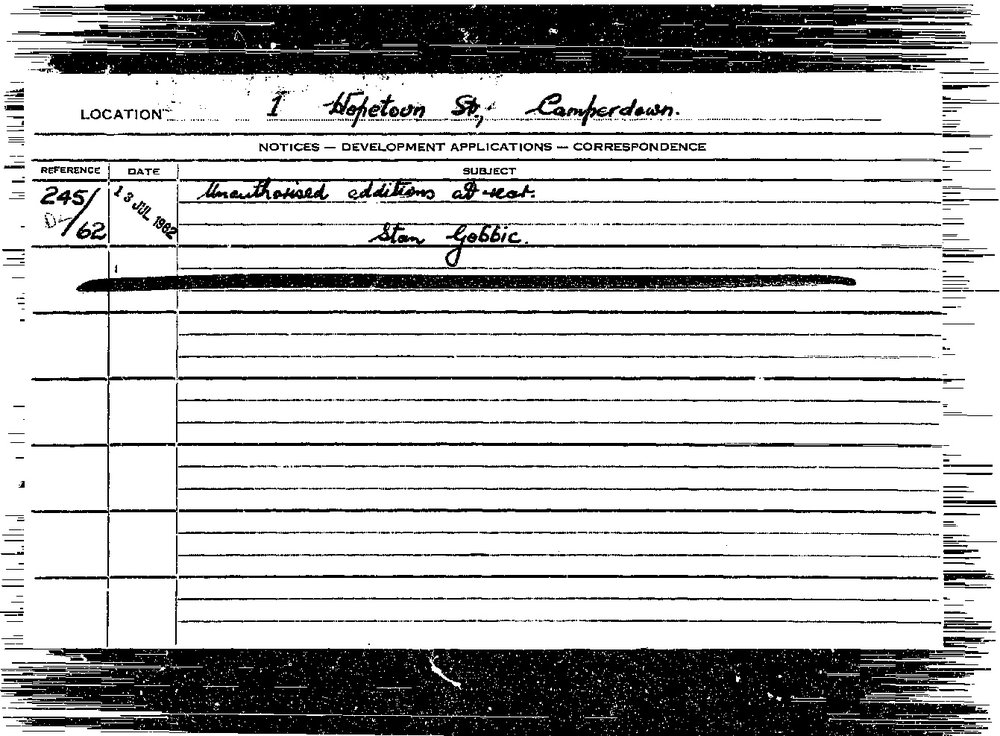 LOCATION 1 Hopetoun St, Camperdown.
NOTICES — DEVELOPMENT APPLICATIONS — CORRESPONDENCE
REFERENCE DATE SUBJECT
245/ 13 JUL 1962 Unauthorised additions at rear.
/62 Stan Gobbic.